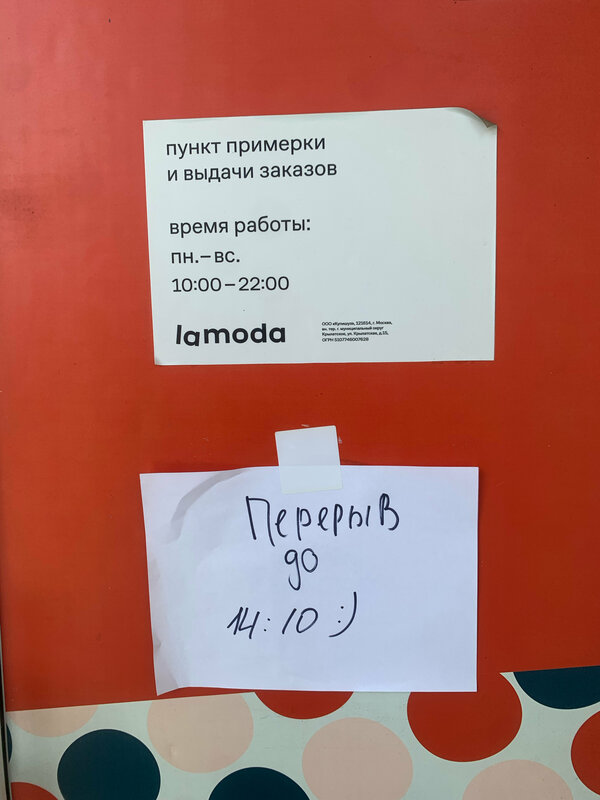 пункт примерки
и выдачи заказов
время работы:
пн.–вс.
10:00–22:00
lamoda
ООО «Купишуз», 121614, г. Москва,
вн. тер. г. муниципальный округ
Крылатское, ул. Крылатская, д.15,
ОГРН 5107746007628
Перерыв
до
14:10 :)